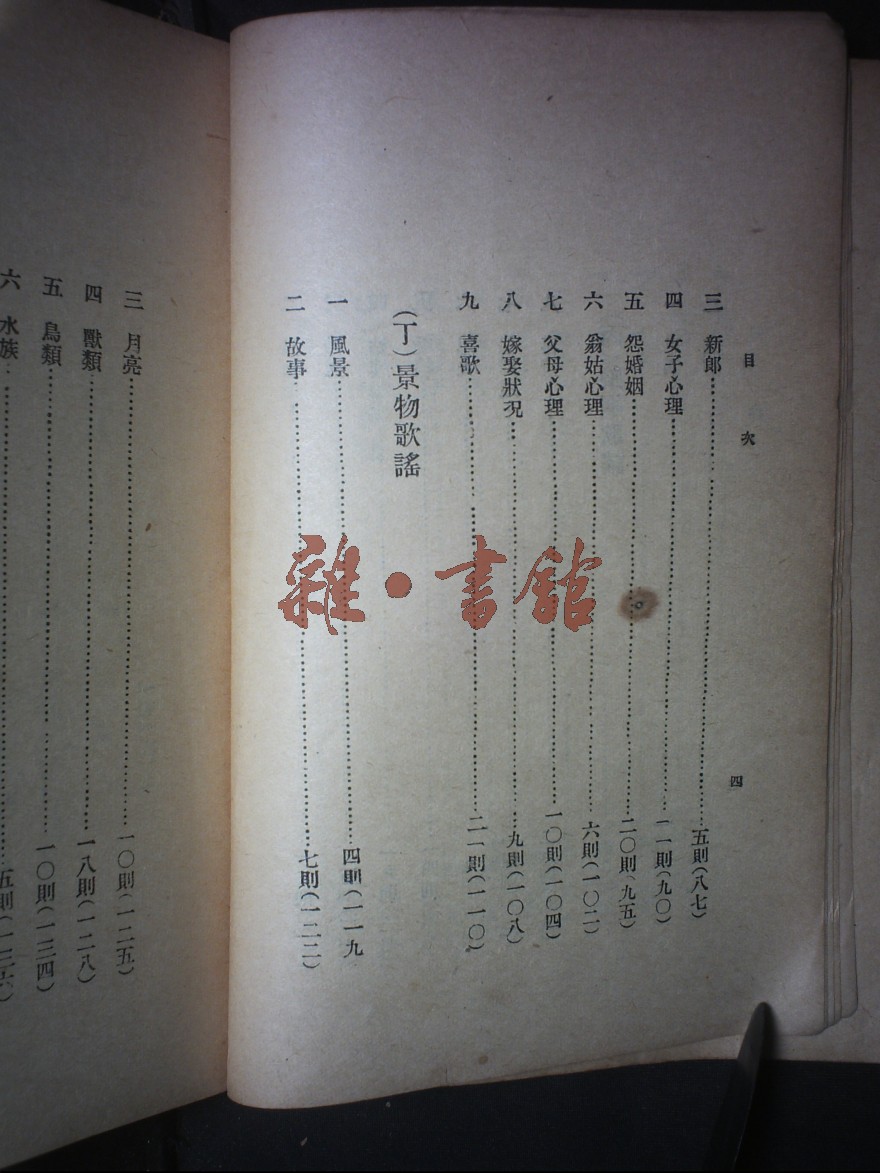 目次 四
三 新郎……五則(八七)
四 女子心理……一一則(九〇)
五 怨婚姻……二〇則(九五)
六 翁姑心理……六則(一〇二)
七 父母心理……一〇則(一〇四)
八 嫁娶狀況……九則(一〇八)
九 喜歌……二一則(一一〇)
(丁)景物歌謠
一 風景……四則(一一九
二 故事……七則(一二二)
三 月亮……一〇則(一二五)
四 獸類……一八則(一二八)
五 鳥類……一〇則(一三四)
六 水族……五則(一三六)
雜·書館